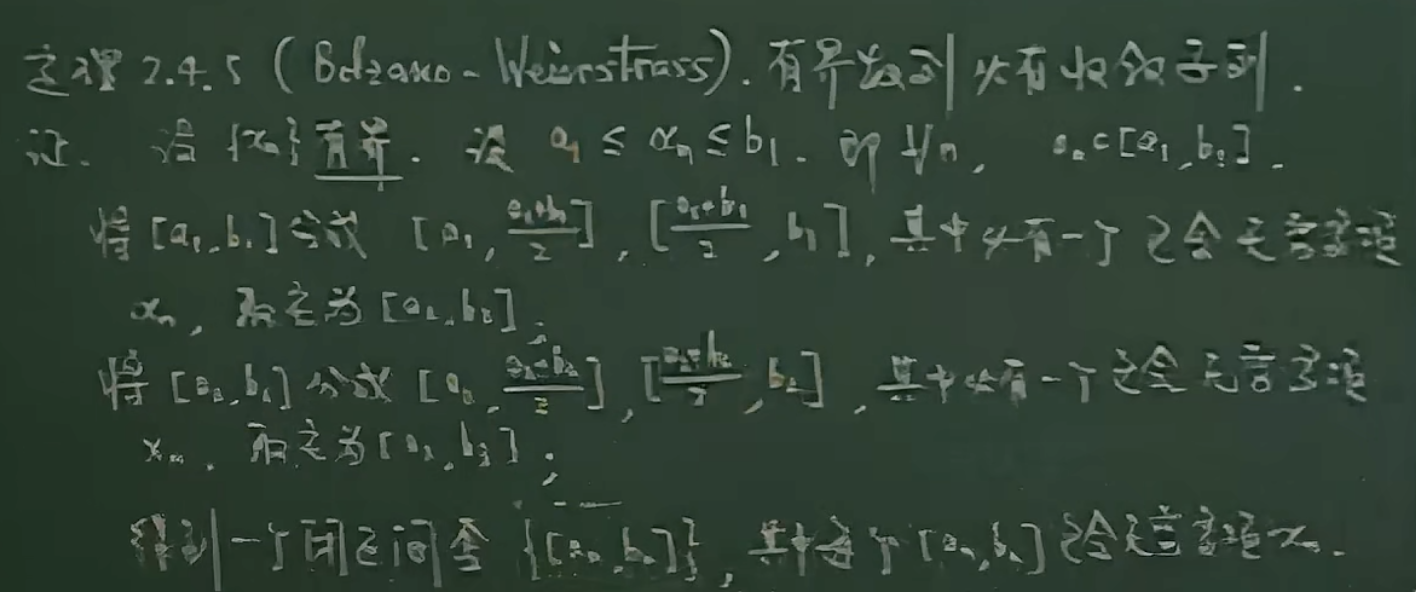 定理 2.4.5 (Bolzano-Weierstrass). 有界数列必有收敛子列.
证. 设 {xₙ} 有界. 设 a₁ ≤ xₙ ≤ b₁. 即 ∀n, xₙ∈[a₁,b₁].
将 [a₁,b₁] 分成 [a₁, (a₁+b₁)/2], [(a₁+b₁)/2, b₁], 其中必有一个包含无穷多项
xₙ, 记之为 [a₂,b₂];
将 [a₂,b₂] 分成 [a₂, (a₂+b₂)/2], [(a₂+b₂)/2, b₂], 其中必有一个包含无穷多项
xₙ, 记之为 [a₃,b₃];
得到一个闭区间套 {[aₙ,bₙ]}, 其中每个 [aₙ,bₙ] 包含无穷多项 xₙ.